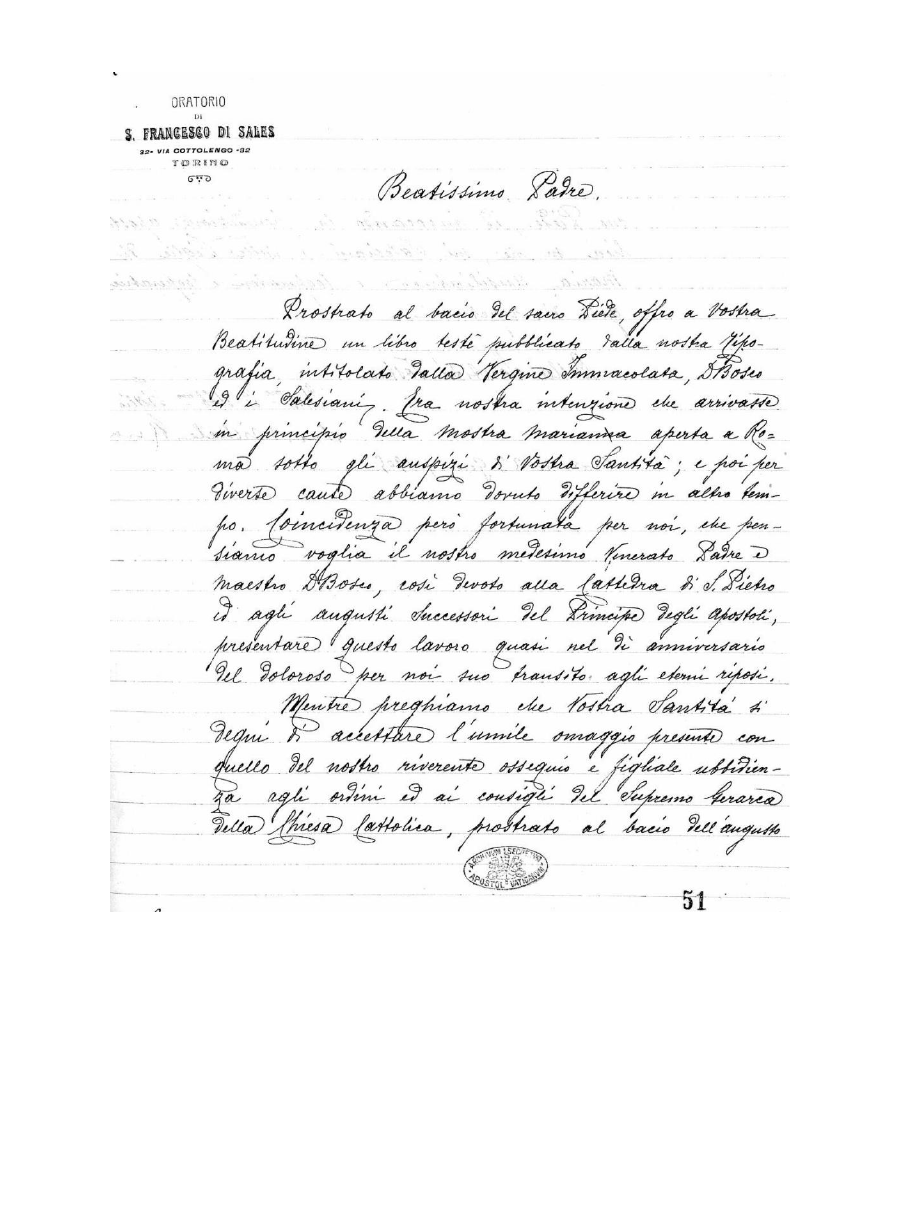 ORATORIO
DI
S. FRANCESCO DI SALES
32- VIA COTTOLENGO -32
TORINO
Beatissimo Padre.
Prostrato al bacio del sacro Piede, offro a Vostra
Beatitudine un libro testè pubblicato dalla nostra Tipo-
grafia, intitolato dalla Vergine Immacolata, D Bosco
ed i Salesiani. Era nostra intenzione che arrivasse
in principio della mostra marianna aperta a Ro=
ma sotto gli auspizi di Vostra Santità; e poi per
diverte cause abbiamo dovuto differire in altro tem-
po. Coincidenza però fortunata per noi, che pen-
siamo voglia il nostro medesimo Venerato Padre e
maestro D Bosco, così devoto alla Cattedra di S. Pietro
ed agli augusti Successori del Principe degli apostoli,
presentare questo lavoro quasi nel dì anniversario
del doloroso per noi suo transito agli eterni riposi.
Mentre preghiamo che Vostra Santità si
degni di accettare l'umile omaggio presente con
quello del nostro riverente ossequio e figliale ubbidien-
za agli ordini ed ai consigli del Supremo Gerarca
della Chiesa Cattolica, prostrato al bacio dell'augusto
APOSTOL. VATICANUM
51